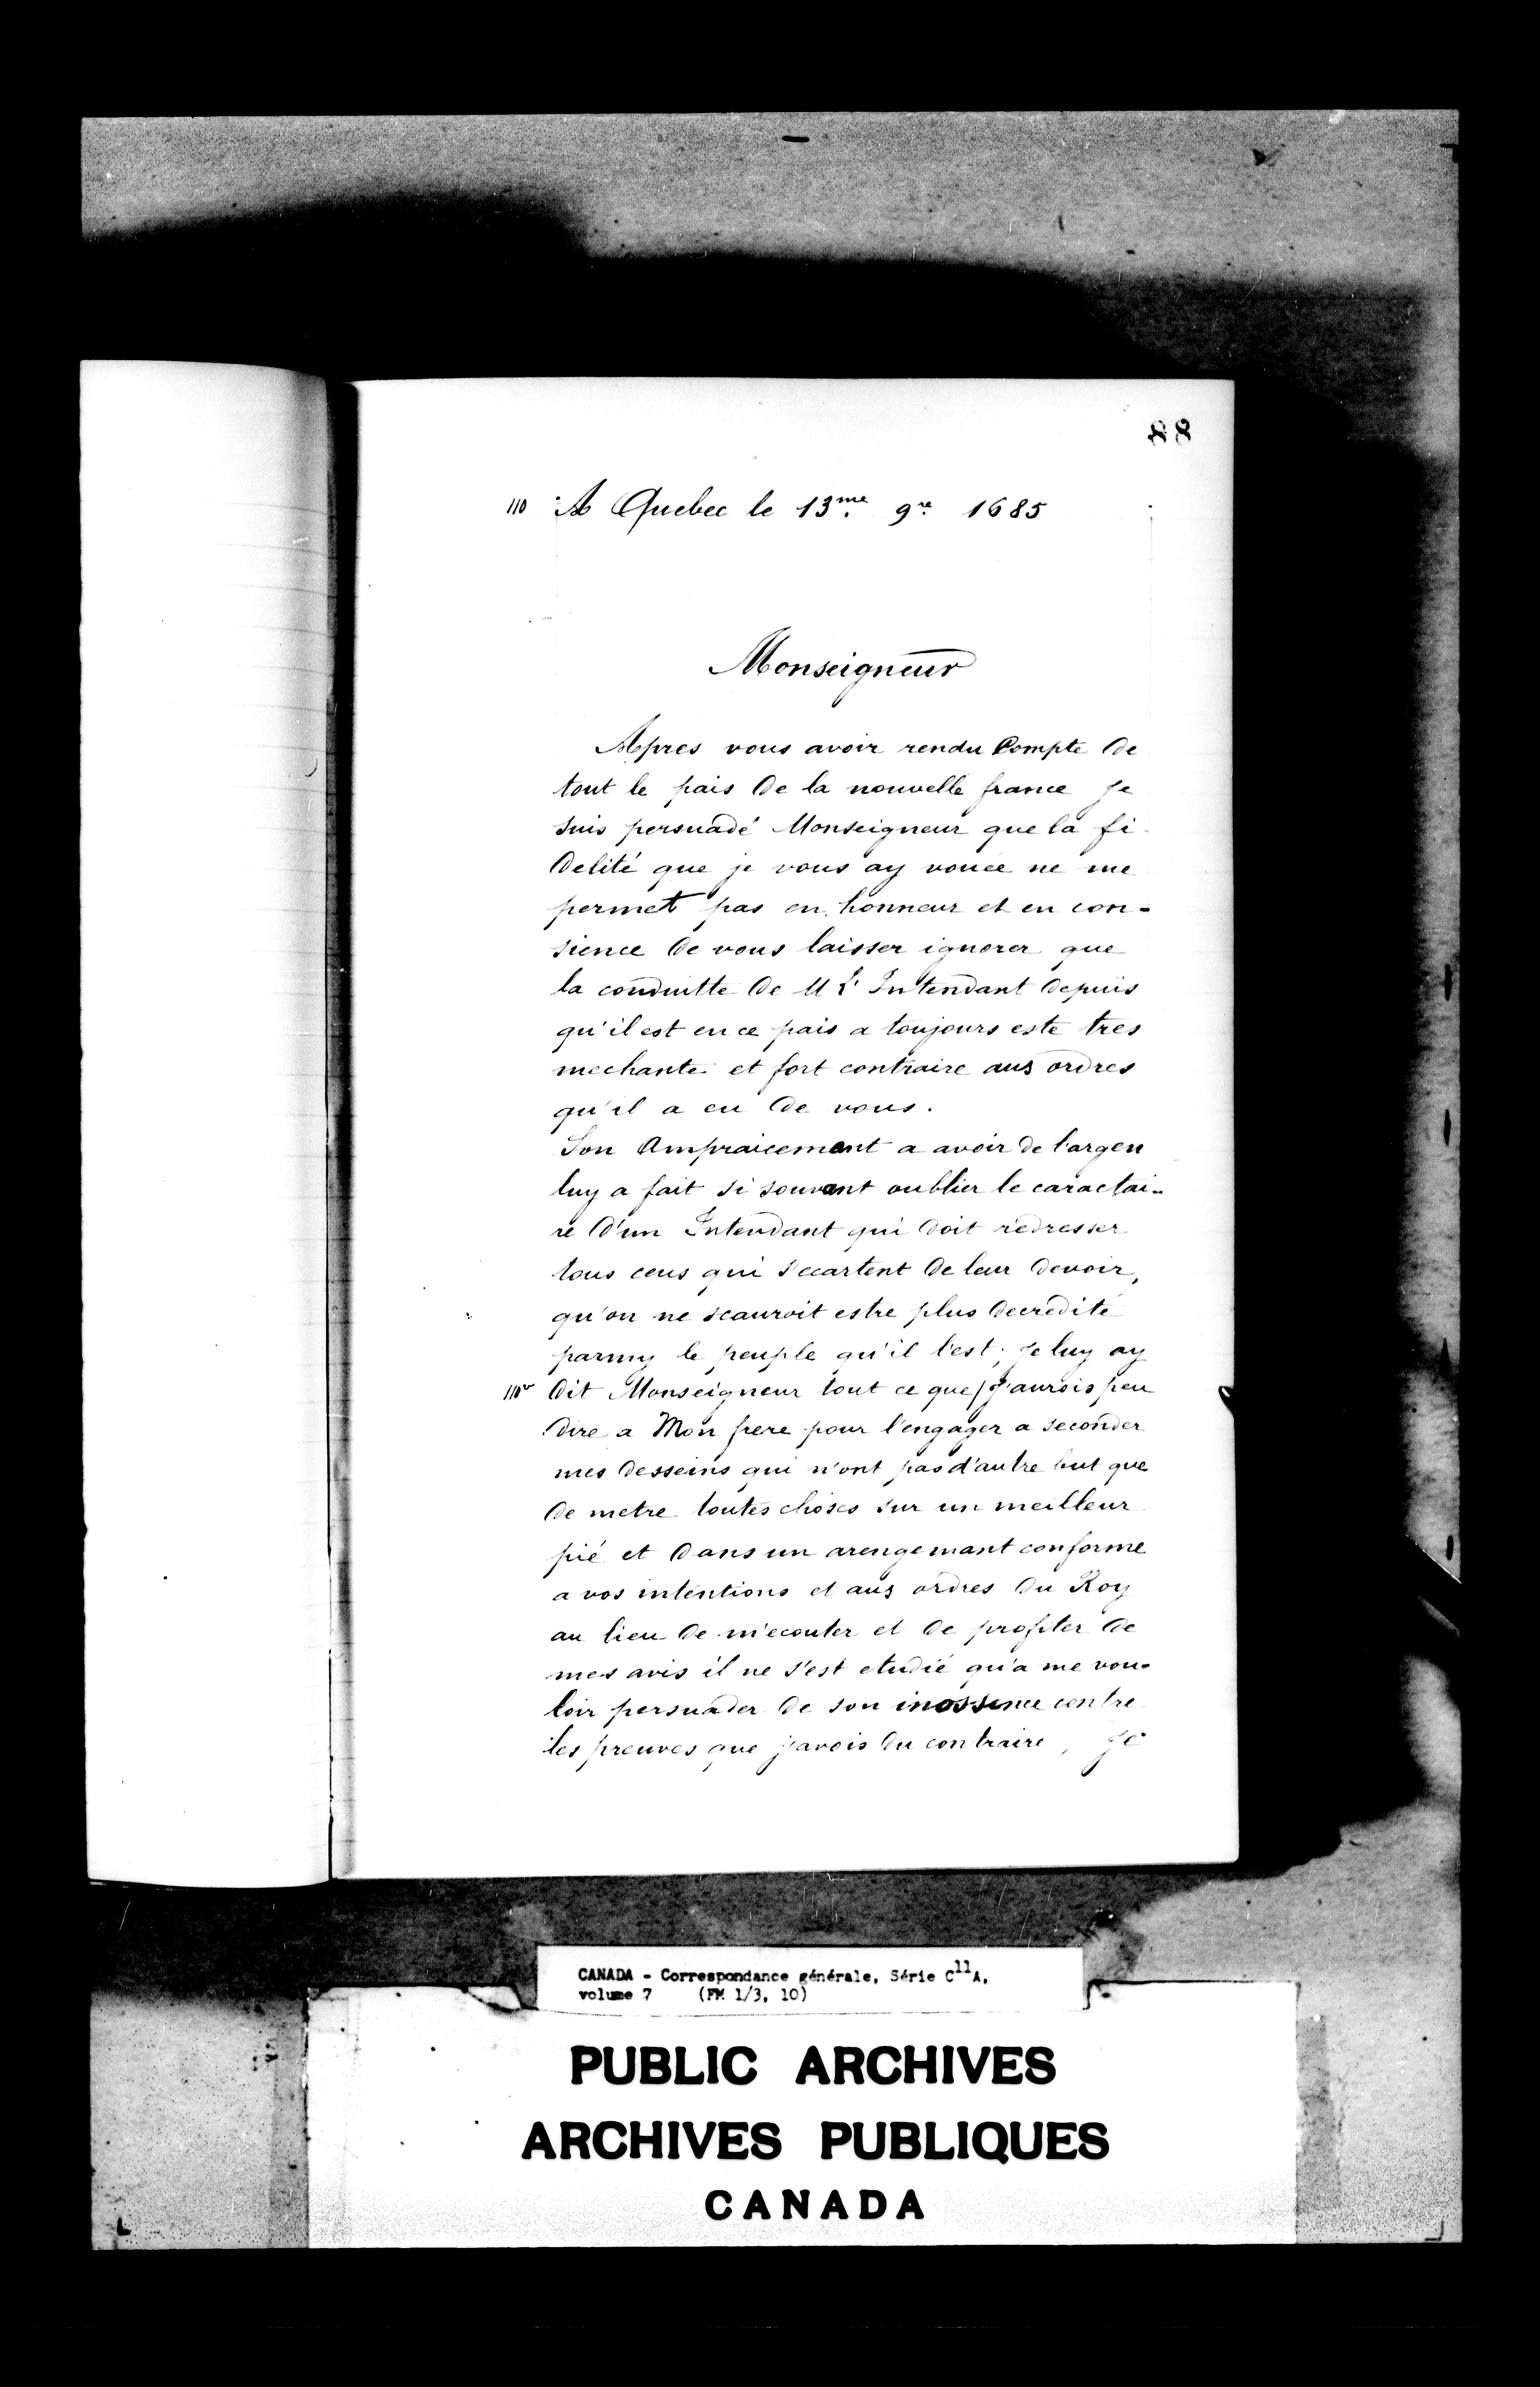 88
110 A Quebec le 13me. 9re 1685
Monseigneur
Apres vous avoir rendu Compte de
tout le pais de la nouvelle france je
suis persuadé Monseigneur que la fi-
delité que je vous ay vouée ne me
permet pas en honneur et en con-
sience de vous laisser ignorer que
la conduitte de M L'Intendant depuis
qu'il est en ce pais a toujours este tres
mechante et fort contraire aus ordres
qu'il a eu de vous.
Son Ampraicemant a avoir de l'argen
luy a fait si souvant oublier le caractai-
re d'un Intendant qui doit redresser
tous ceus qui s'ecartent de leur devoir,
qu'on ne scauroit estre plus decredité
parmy le peuple qu'il l'est; je luy ay
110v dit Monseigneur tout ce que / j'aurois peu
dire a Mon frere pour l'engager a seconder
mes desseins qui n'ont pas d'autre but que
de metre toutes choses sur un meilleur
pié et dans un arengemant conforme
a vos intentions et aus ordres du Roy
au lieu de m'ecouter et de profiter de
mes avis il ne s'est etudié qu'a me vou-
loir persuader de son inossence contre
les preuves que j'avois du contraire, je
CANADA - Correspondance générale, Série C11A,
volume 7 (FM 1/3, 10)
PUBLIC ARCHIVES
ARCHIVES PUBLIQUES
CANADA